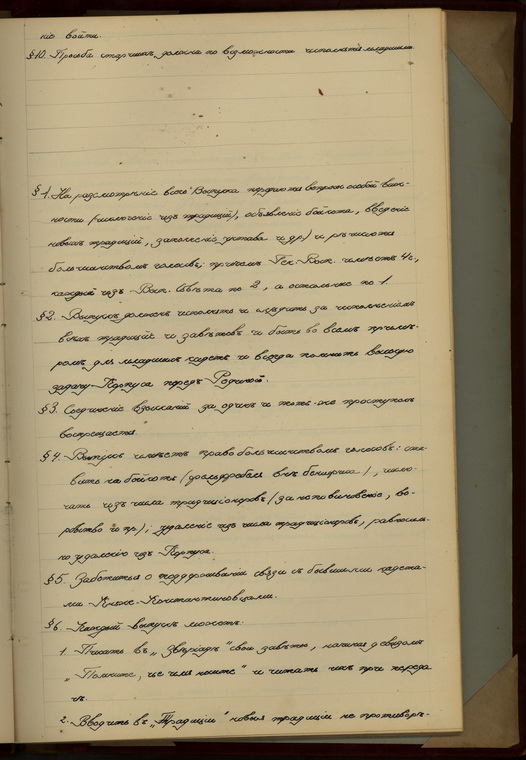 ніе войти.
§10. Просьба старшихъ должна по возможности исполнятся младшими
§1. На разсмотрѣніе всего Выпуска передаются вопросы особой важ-
ности (исключеніе изъ традицій), объявленіе бойкота, введеніе
новыхъ традицій, запаленіе устава и др.) и рѣшаются
большинствомъ голосовъ; причемъ Ген. Вып. имѣетъ 4 г.,
каждый изъ Вып. Совѣта по 2, а остальные по 1.
§2. Выпускъ долженъ исполнять и слѣдить за исполненіемъ
всѣхъ традицій и завѣтовъ и быть во всемъ примѣ-
ромъ для младшихъ кадетъ и всегда помнить высокую
задачу Корпуса передъ Родиной.
§3. Соединеніе взысканій за одинъ и тотъ-же проступокъ
воспрещается.
§4. Выпускъ имѣетъ право большинствомъ голосовъ: ста-
вить на бойкотъ, исклю-
чать изъ числа традиціонеровъ (за неповиновеніе, во-
ровство и пр.); удаленіе изъ числа традиціонеровъ, равносиль-
но удаленію изъ Корпуса.
§5. Заботиться о поддержаніи связи съ бывшими кадета-
ми Княже-Константиновцами.
§6. Каждый выпускъ можетъ:
1. Писать въ „Звѣріадѣ" свои завѣты, начиная девизомъ
„Помните, чье имя носите" и читать ихъ при переда
чѣ.
2. Вводить въ „Традиціи" новыя традиціи не противорѣ-